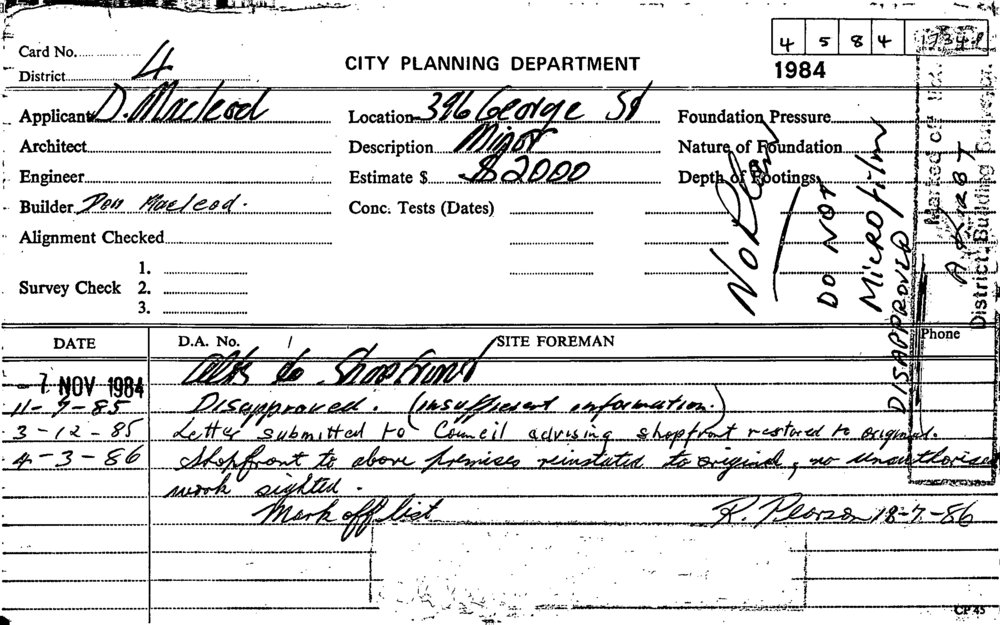 Card No. 4 5 8 4
District 4 CITY PLANNING DEPARTMENT 1984
Applicant D. Macleod Location 396 George St Foundation Pressure
Architect Description Minor Nature of Foundation
Engineer Estimate $ $2000 Depth of Footings
Builder Don Macleod. Conc. Tests (Dates)
Alignment Checked
1.
Survey Check 2.
3.
No Plan
DO NOT
MICROfilm
DISAPPROVED
Marked off
District Building
DATE D.A. No. SITE FOREMAN Phone
- 7 NOV 1984 Alts to Shopfront
11-7-85 Disapproved. (insufficient information.)
3-12-85 Letter submitted to Council advising shopfront restored to original.
4-3-86 Shopfront to above premises reinstated to original, no unauthorised
work sighted.
Mark off list R. Pearson 18-7-86
CP 45